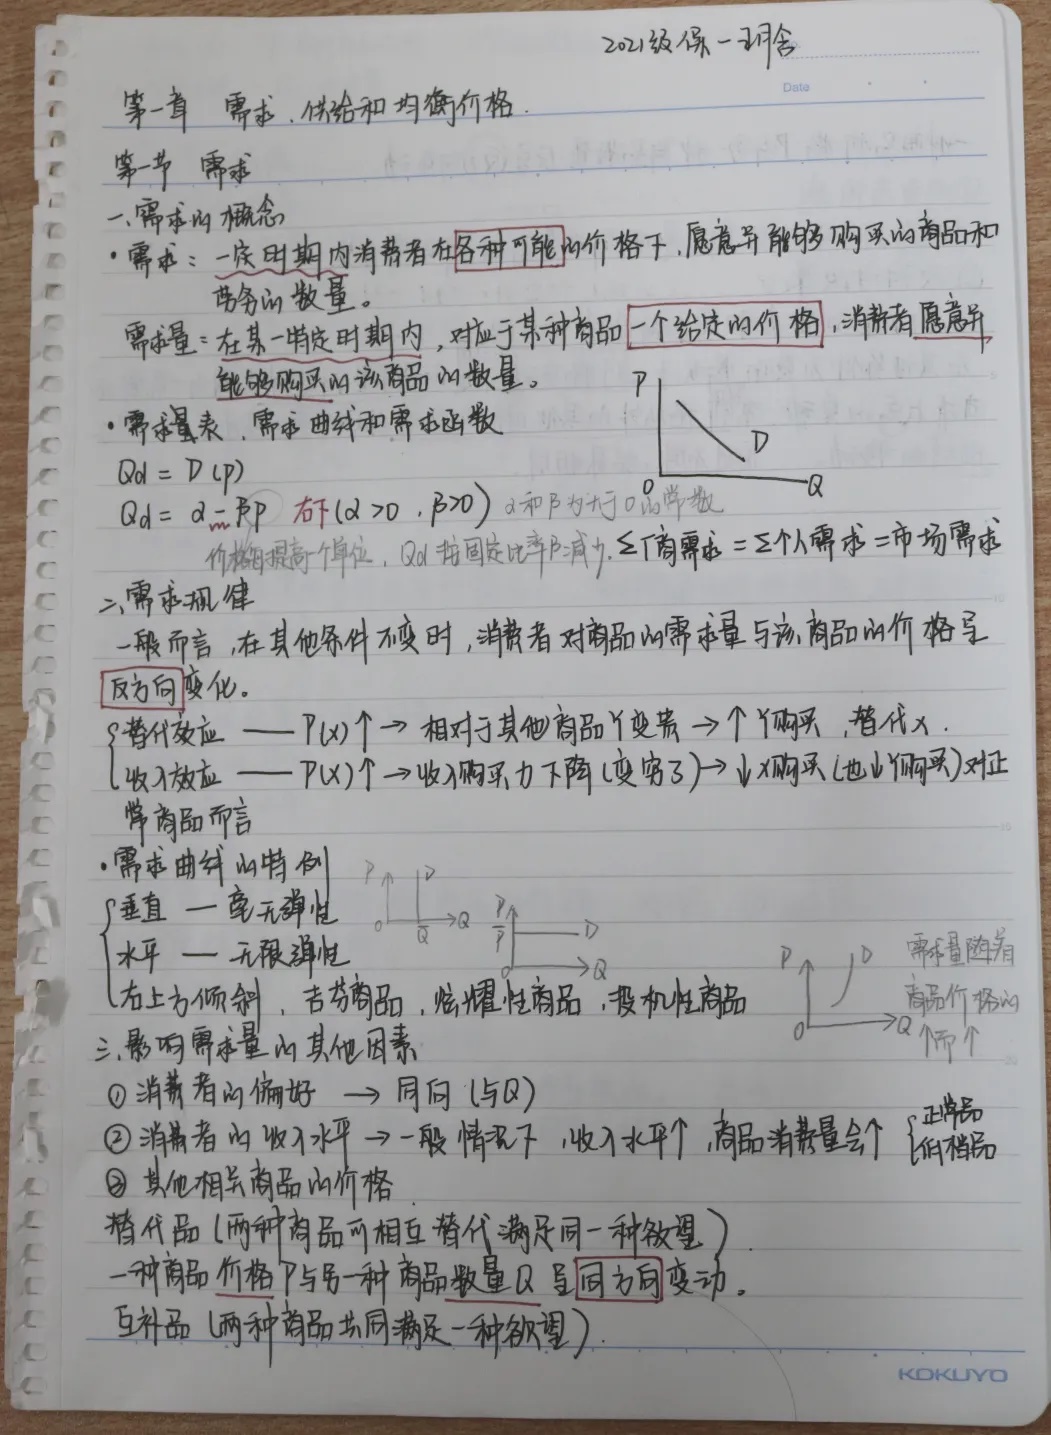 2021级保一 玥含
Date
第一章 需求、供给和均衡价格.
第一节 需求
一、需求的概念
·需求：一定时期内消费者在各种可能的价格下，愿意并能够购买的商品和
劳务的数量。
需求量：在某一特定时期内，对应于某种商品一个给定的价格，消费者愿意并
能够购买的该商品的数量。
P
D
O Q
·需求量表、需求曲线和需求函数
Qd = D(P)
Qd = α - βp 右下(α>0，β>0) α和β为大于0的常数
价格每提高一个单位，Qd按固定比率β减少. Σ厂商需求=Σ个人需求=市场需求
二、需求规律
一般而言，在其他条件不变时，消费者对商品的需求量与该商品的价格呈
反方向变化。
替代效应 —— P(x)↑ → 相对于其他商品Y变贵 → ↑Y购买，替代x.
收入效应 —— P(x)↑ → 收入购买力下降(变穷了) → ↓x购买(也↓Y购买)对正
常商品而言
·需求曲线的特例
垂直 — 毫无弹性
P D
O Q̄ Q
水平 — 无限弹性
P
P̄ D
O Q
右上方倾斜，吉芬商品，炫耀性商品，投机性商品
P D
O Q
需求量随着
商品价格的
↑而↑
三、影响需求量的其他因素
① 消费者的偏好 → 同向(与Q)
② 消费者的收入水平 → 一般情况下，收入水平↑，商品消费量会↑ { 正常品
低档品
③ 其他相关商品的价格
替代品(两种商品可相互替代满足同一种欲望)
一种商品价格P与另一种商品数量Q呈同方向变动。
互补品(两种商品共同满足一种欲望).
KOKUYO